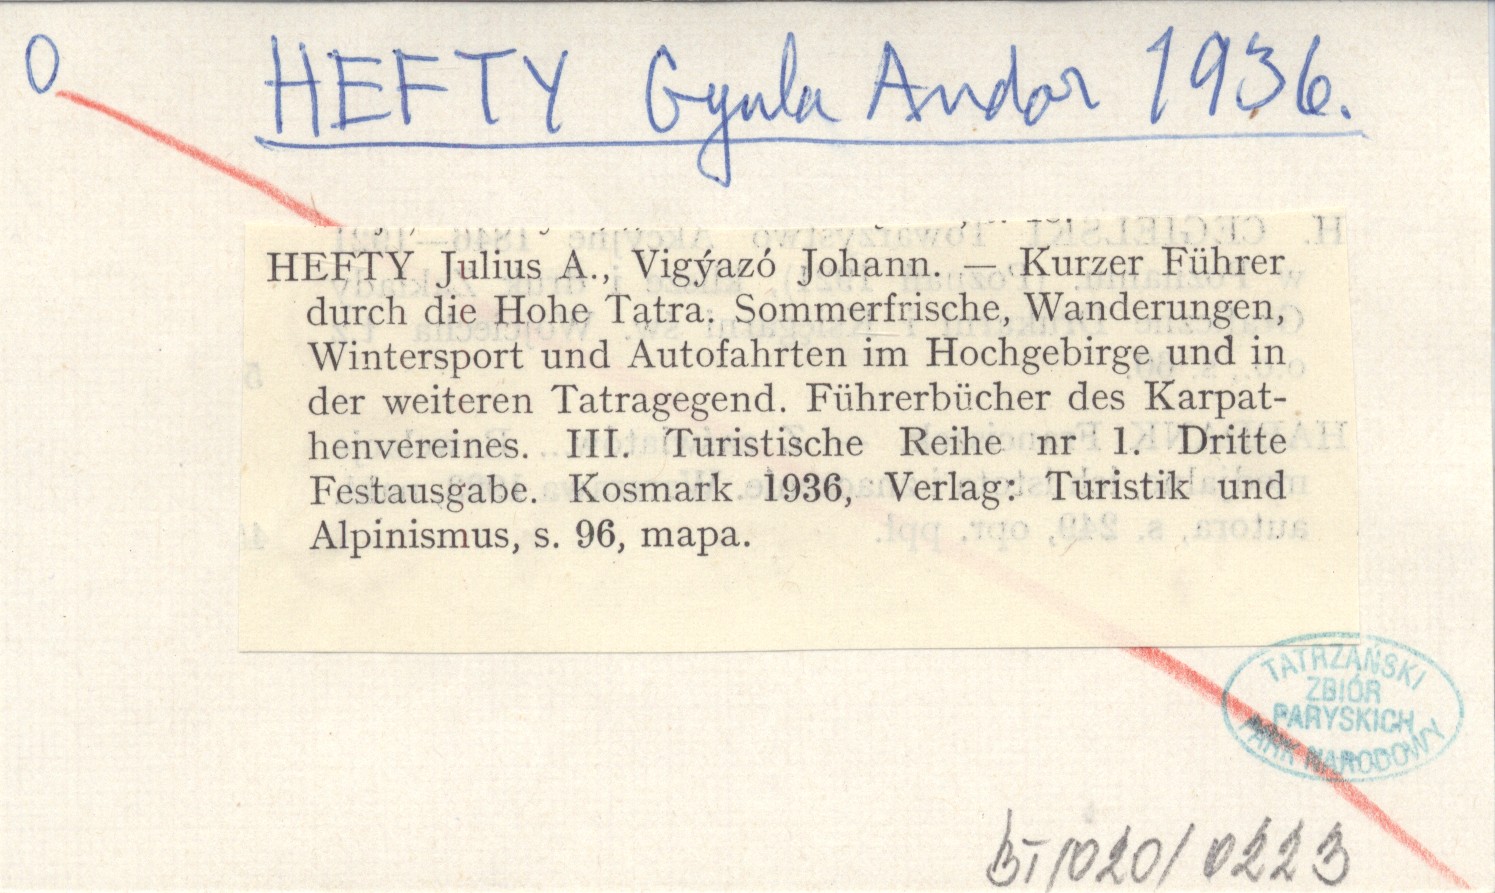 O
HEFTY Gyula Andor 1936.
HEFTY Julius A., Vigýazó Johann. — Kurzer Führer
durch die Hohe Tatra. Sommerfrische, Wanderungen,
Wintersport und Autofahrten im Hochgebirge und in
der weiteren Tatragegend. Führerbücher des Karpat-
henvereines. III. Turistische Reihe nr 1. Dritte
Festausgabe. Kosmark 1936, Verlag: Turistik und
Alpinismus, s. 96, mapa.
TATRZAŃSKI
ZBIÓR
PARYSKICH
PARK NARODOWY
BT/020/0223